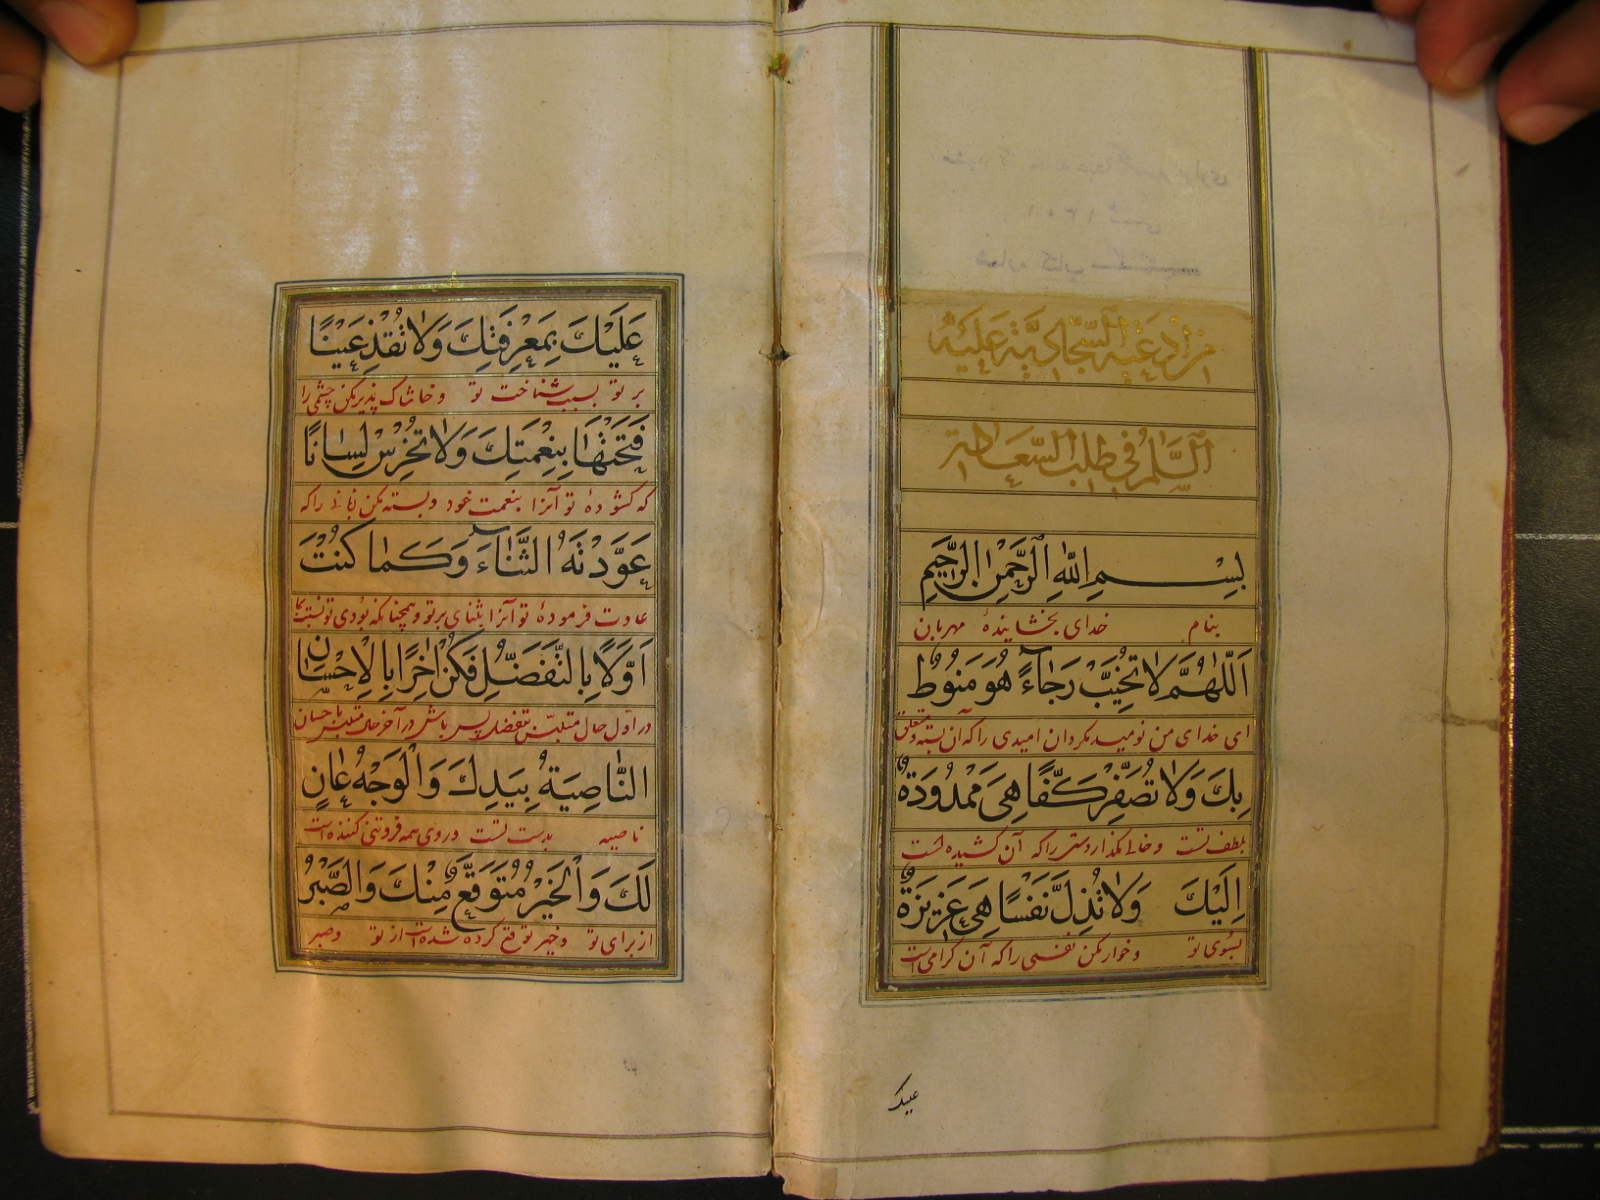 من ادعية السجادية عليه
السلم في طلب السعادة
بِسْمِ اللهِ الرَّحْمنِ الرَّحِيمِ
بنام خدای بخشایندهٔ مهربان
اَللّهُمَّ لا تُخَيِّبْ رَجاءً هُوَ مَنُوطٌ
ای خدای من نومید مکردان امیدی را که آن بسته و متعلق
بِكَ وَلا تُصَفِّرْ كَفًّا هِيَ مَمْدُودَةٌ
بلطف تست و خالی مکذار دستی را که آن کشیده است
اِلَيْكَ وَلا تُذِلَّ نَفْسًا هِيَ عَزِيزَةٌ
بسوی تو و خوار مکن نفسی را که آن کرامی است
علیک
عَلَيْكَ بِمَعْرِفَتِكَ وَلا تُقْذِ عَيْنًا
بر تو بسبب شناخت تو و خاشاک پذیر مکن چشمی را
فَتَحْتَها بِنِعْمَتِكَ وَلا تُخْرِسْ لِسانًا
که کشودهٔ تو آنرا بنعمت خود و بسته مکن زبانی را که
عَوَّدْتَهُ الثَّناءَ وَكَما كُنْتَ
عادت فرمودهٔ تو آنرا بثنای بر تو و همچنانکه بودی تو نسبت بما
اَوَّلًا بِالتَّفَضُّلِ فَكُنْ اخِرًا بِالْاِحْسانِ
در اول حال متلبس بتفضل پس باش در آخر حال متلبس باحسان
النّاصِيَةُ بِيَدِكَ وَالْوَجْهُ عانٍ
ناصیه بدست تست و روی همه فروتنی کننده است
لَكَ وَالْخَيْرُ مُتَوَقَّعٌ مِنْكَ وَالصَّبْرُ
از برای تو و خیر توقع کرده شده است از تو و صبر